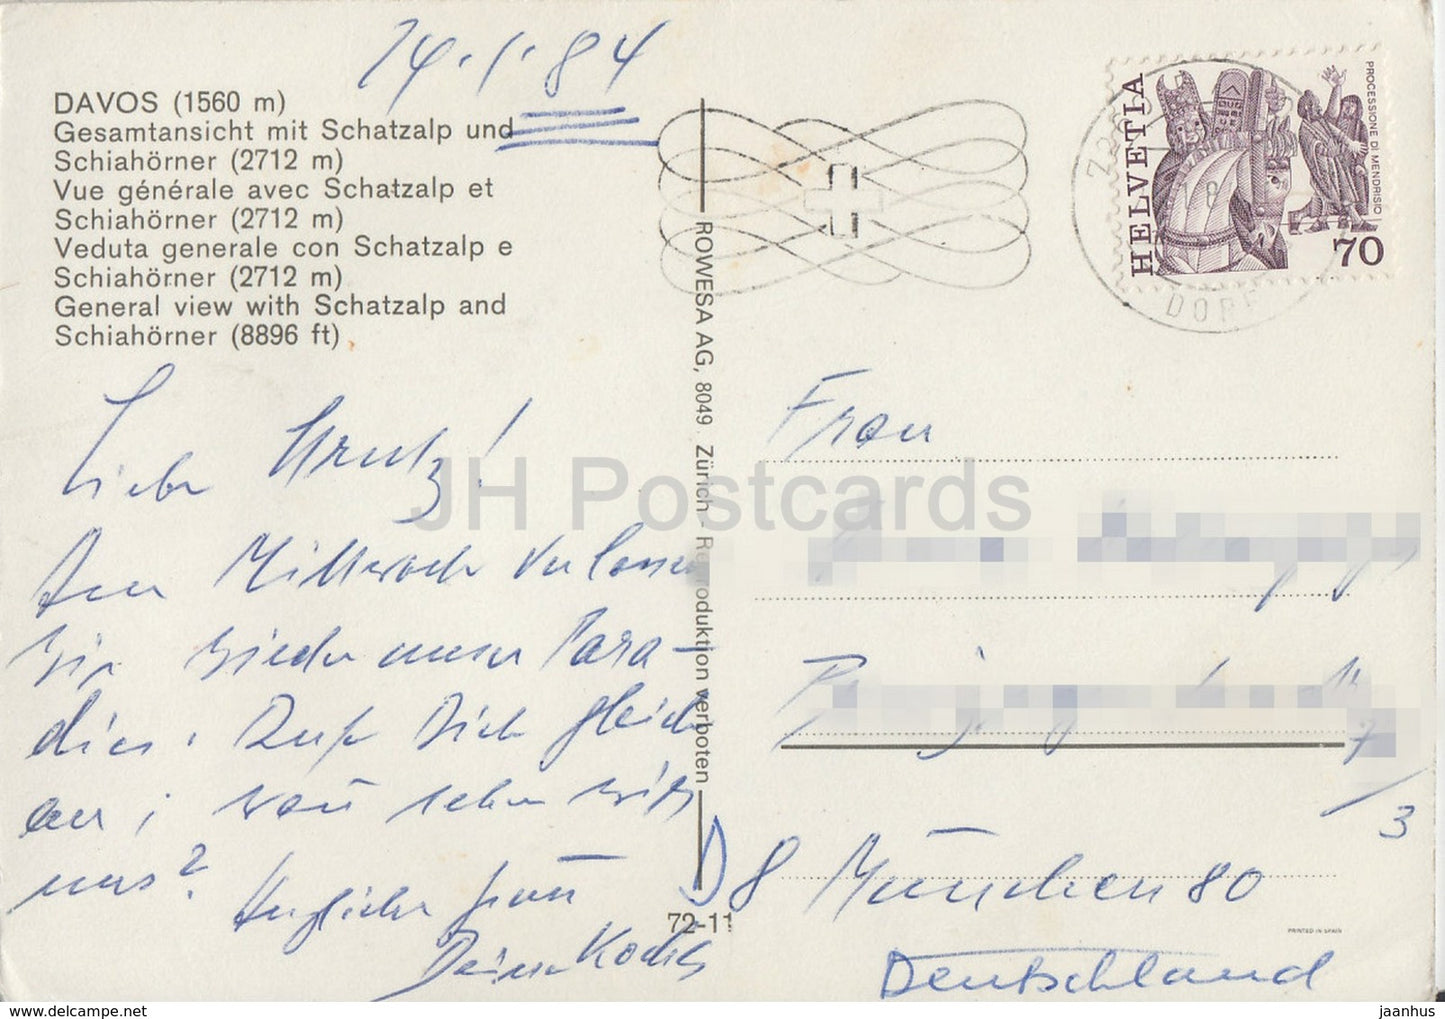 14.1.84
DAVOS (1560 m)
Gesamtansicht mit Schatzalp und
Schiahörner (2712 m)
Vue générale avec Schatzalp et
Schiahörner (2712 m)
Veduta generale con Schatzalp e
Schiahörner (2712 m)
General view with Schatzalp and
Schiahörner (8896 ft)
HELVETIA
PROCESSIONE DI MENDRISIO
70
DORF
ROWESA AG, 8049 Zürich - Reproduktion verboten
72-11
Liebe
Am Mittwoch verlassen
wir wieder unser Para-
dies. Rufe Dich gleich
an; wann sehen wir
uns?
Herzliche
Deine Kochs
Frau
D 8 München 80
Deutschland
/3
PRINTED IN SPAIN
JH Postcards
delcampe.net
jaanhus